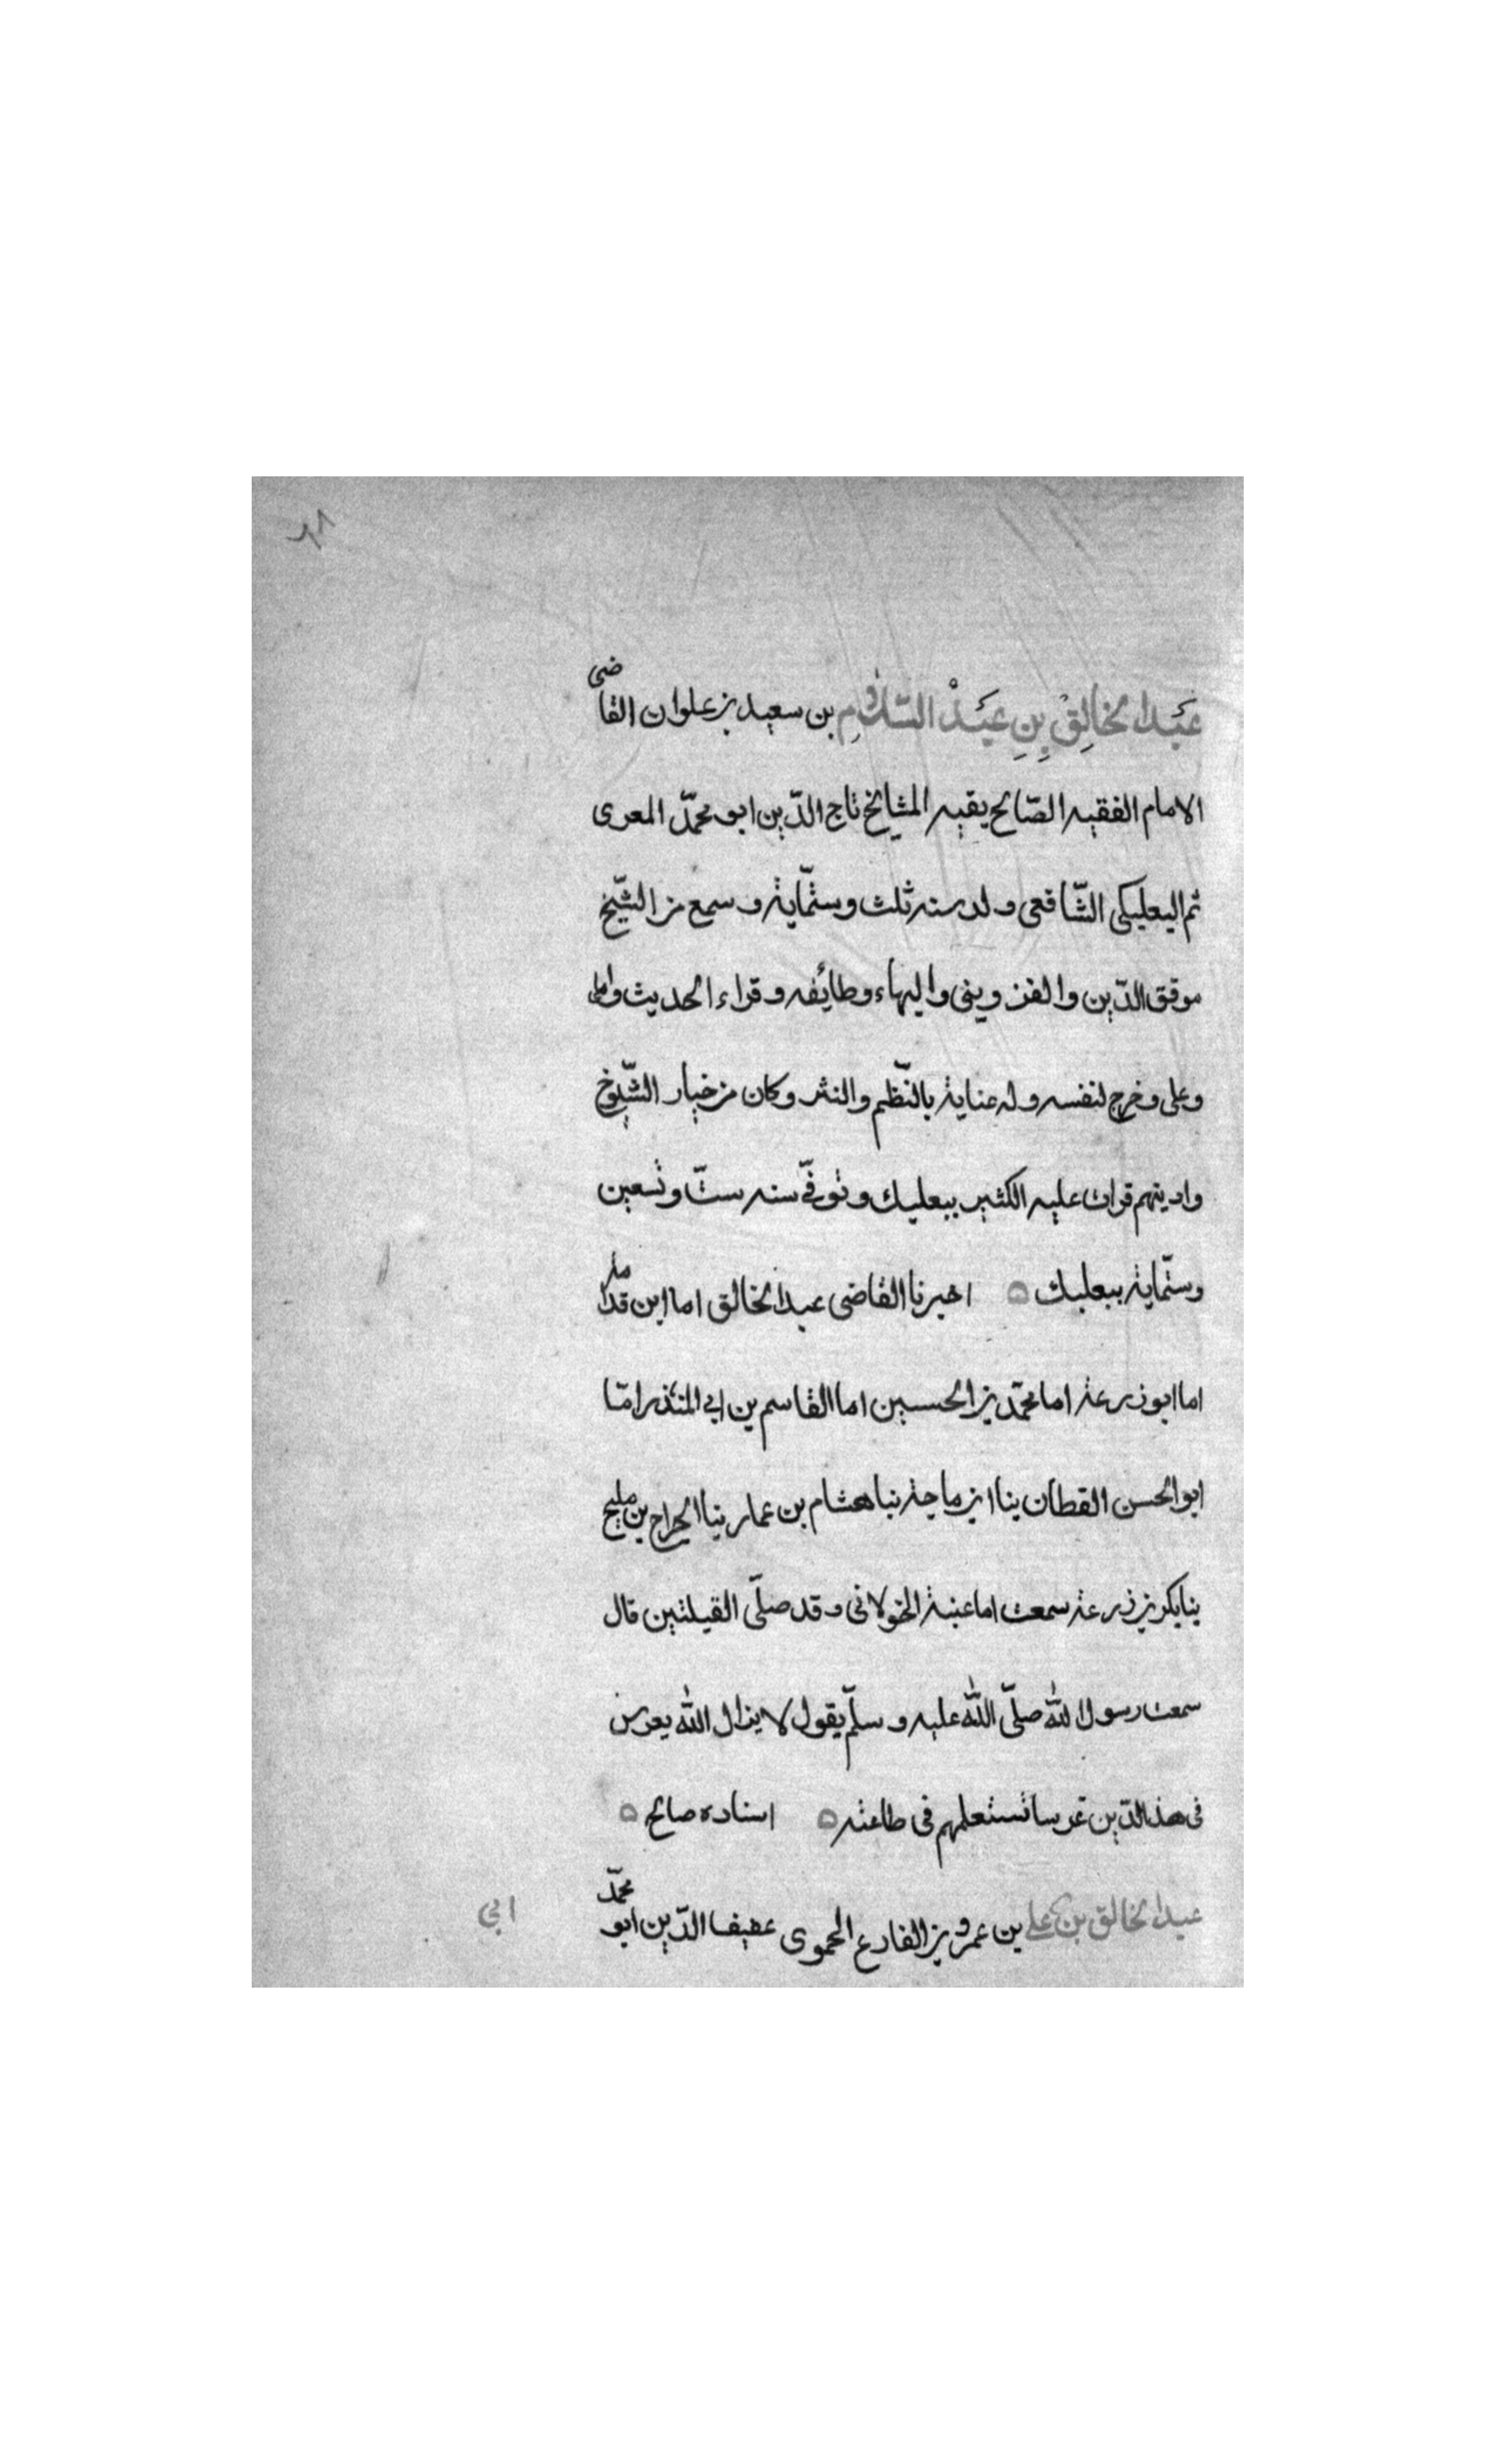 عَبْدالخالِقْ بِنِ عَبْدْ السَّلامِ بن سعيد بن علوان القاضى
الامام الفقيه الصّالح بقيه المشايخ تاج الدّين ابو محمّد المعرى
ثم البعلبكى الشّافعى ولد سنه ثلث وستّماية وسمع من الشّيخ
موفق الدّين والقزوينى والبهاء وطائفه وقراء الحديث واملى
وعلى وخرج لنفسه وله عناية بالنّظم والنثر وكان من خيار الشّيوخ
وادينهم قرات عليه الكثير ببعلبك وتوفّى سنه ستّ وتسعين
وستّماية ببعلبك ه اخبرنا القاضى عبدالخالق اما ابن قدامة
اما ابو زرعة اما محمّد بن الحسين اما القاسم بن ابي المنذر امّا
ابو الحسن القطان بنا ابن ماجة نبا هشام بن عمار بنا الجراح بن مليح
بنا بكر بن زرعة سمعت اما عنبة الخولانى وقد صلّى القبلتين قال
سمعت رسول الله صلّى الله عليه وسلّم يقول لا يزال الله يعرس
فى هذ الدّين غرسا تستعلمهم فى طاعته ه اسناده صالح ه
عبدالخالق بن على بن عمرو بن الفارع الحموى عفيف الدّين ابو محمّد
ابي